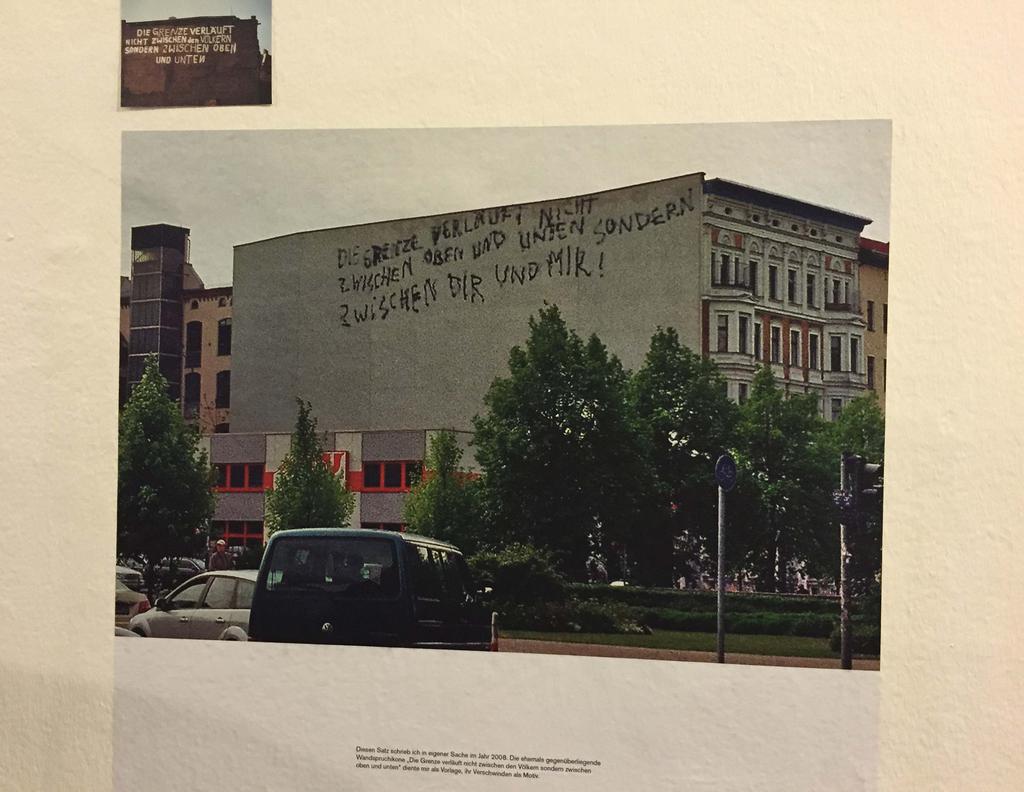 DIE GRENZE VERLÄUFT
NICHT ZWISCHEN den VÖLKERN
SONDERN ZWISCHEN OBEN
UND UNTEN
DIE GRENZE VERLÄUFT NICHT
ZWISCHEN OBEN UND UNTEN SONDERN
ZWISCHEN DIR UND MIR!
Diesen Satz schrieb ich in eigener Sache im Jahr 2008. Die ehemals gegenüberliegende
Wandspruchikone „Die Grenze verläuft nicht zwischen den Völkern sondern zwischen
oben und unten“ diente mir als Vorlage, ihr Verschwinden als Motiv.